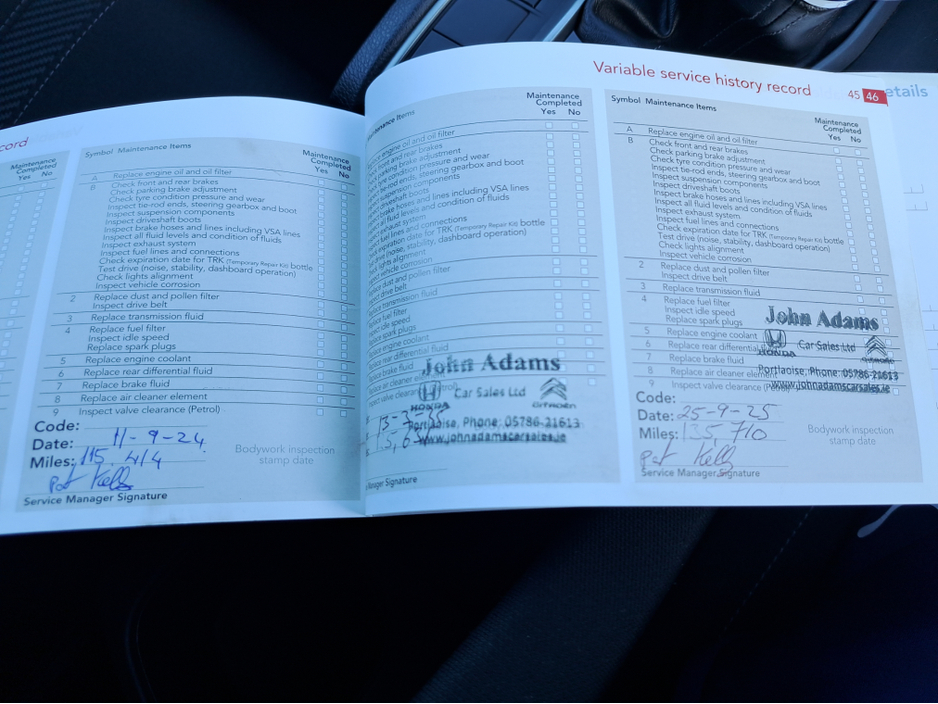 cord
Maintenance
Completed
Yes No
Symbol Maintenance Items
Maintenance
Completed
Yes No
A Replace engine oil and oil filter
B Check front and rear brakes
Check parking brake adjustment
Check tyre condition pressure and wear
Inspect tie-rod ends, steering gearbox and boot
Inspect suspension components
Inspect driveshaft boots
Inspect brake hoses and lines including VSA lines
Inspect all fluid levels and condition of fluids
Inspect exhaust system
Inspect fuel lines and connections
Check expiration date for TRK (Temporary Repair Kit) bottle
Test drive (noise, stability, dashboard operation)
Check lights alignment
Inspect vehicle corrosion
2 Replace dust and pollen filter
Inspect drive belt
3 Replace transmission fluid
4 Replace fuel filter
Inspect idle speed
Replace spark plugs
5 Replace engine coolant
6 Replace rear differential fluid
7 Replace brake fluid
8 Replace air cleaner element
9 Inspect valve clearance (Petrol)
Code:
Date: 11-9-24
Miles: 115 414
Pat Kelly
Service Manager Signature
Bodywork inspection
stamp date
Maintenance Items
Maintenance
Completed
Yes No
Replace engine oil and oil filter
front and rear brakes
parking brake adjustment
tyre condition pressure and wear
tie-rod ends, steering gearbox and boot
suspension components
driveshaft boots
brake hoses and lines including VSA lines
all fluid levels and condition of fluids
exhaust system
fuel lines and connections
expiration date for TRK (Temporary Repair Kit) bottle
drive (noise, stability, dashboard operation)
lights alignment
vehicle corrosion
dust and pollen filter
drive belt
transmission fluid
fuel filter
idle speed
spark plugs
engine coolant
rear differential fluid
brake fluid
air cleaner element
valve clearance
John Adams
Car Sales Ltd
HONDA CITROËN
Portlaoise, Phone: 05786-21613
www.johnadamscarsales.ie
Manager Signature
Variable service history record 45 46
etails
Symbol Maintenance Items
Maintenance
Completed
Yes No
A Replace engine oil and oil filter
B Check front and rear brakes
Check parking brake adjustment
Check tyre condition pressure and wear
Inspect tie-rod ends, steering gearbox and boot
Inspect suspension components
Inspect driveshaft boots
Inspect brake hoses and lines including VSA lines
Inspect all fluid levels and condition of fluids
Inspect exhaust system
Inspect fuel lines and connections
Check expiration date for TRK (Temporary Repair Kit) bottle
Test drive (noise, stability, dashboard operation)
Check lights alignment
Inspect vehicle corrosion
2 Replace dust and pollen filter
Inspect drive belt
3 Replace transmission fluid
4 Replace fuel filter
Inspect idle speed
Replace spark plugs
5 Replace engine coolant
6 Replace rear differential
7 Replace brake fluid
8 Replace air cleaner element
9 Inspect valve clearance
John Adams
Car Sales Ltd
HONDA CITROËN
Portlaoise, Phone: 05786-21613
www.johnadamscarsales.ie
Code:
Date: 25-9-25
Miles: 135,710
Pat Kelly
Service Manager Signature
Bodywork inspection
stamp date